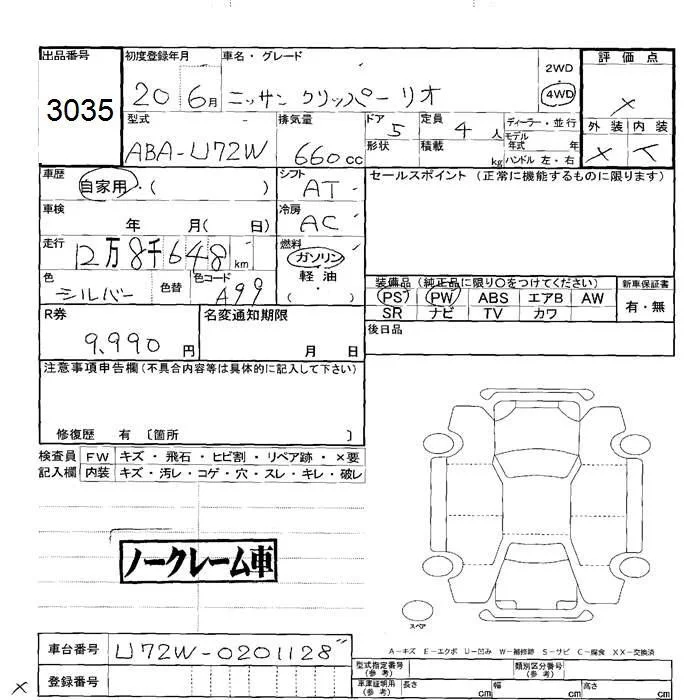 出品番号 初度登録年月 車名・グレード 2WD 評価点
3035 20 6月 ニッサン クリッパーリオ 4WD ×
型式 排気量 ドア 5 定員 4人 ディーラー・並行 外装 内装
ABA-U72W 660cc 形状 積載 kg モデル年式 年式 ハンドル 左・右 ×
車歴 シフト セールスポイント (正常に機能するものに限ります)
自家用・( ) AT
車検 冷房
年 月( 日) AC
走行 燃料
12万8千648km ガソリン・軽油
色 色替 色コード ( )
シルバー A99
装備品 (純正品に限り○をつけてください) 新車保証書
PS PW ABS エアB AW 有・無
SR ナビ TV カワ
R券 名変通知期限 後日品
9,990円 月 日
注意事項申告欄(不具合内容等は具体的に記入して下さい)
修復歴 有 〔箇所 〕
検査員 FW キズ・飛石・ヒビ割・リペア跡・×要
記入欄 内装 キズ・汚レ・コゲ・穴・スレ・キレ・破レ
ノークレーム車
スペア
A-キズ E-エクボ U-凹み W-補修跡 S-サビ C-腐食 XX-交換済
車台番号 U72W-0201128〃
型式指定番号(参考) 類別区分番号(参考)
× 登録番号
車庫証明用(参考) 長さ cm 幅 cm 高さ cm